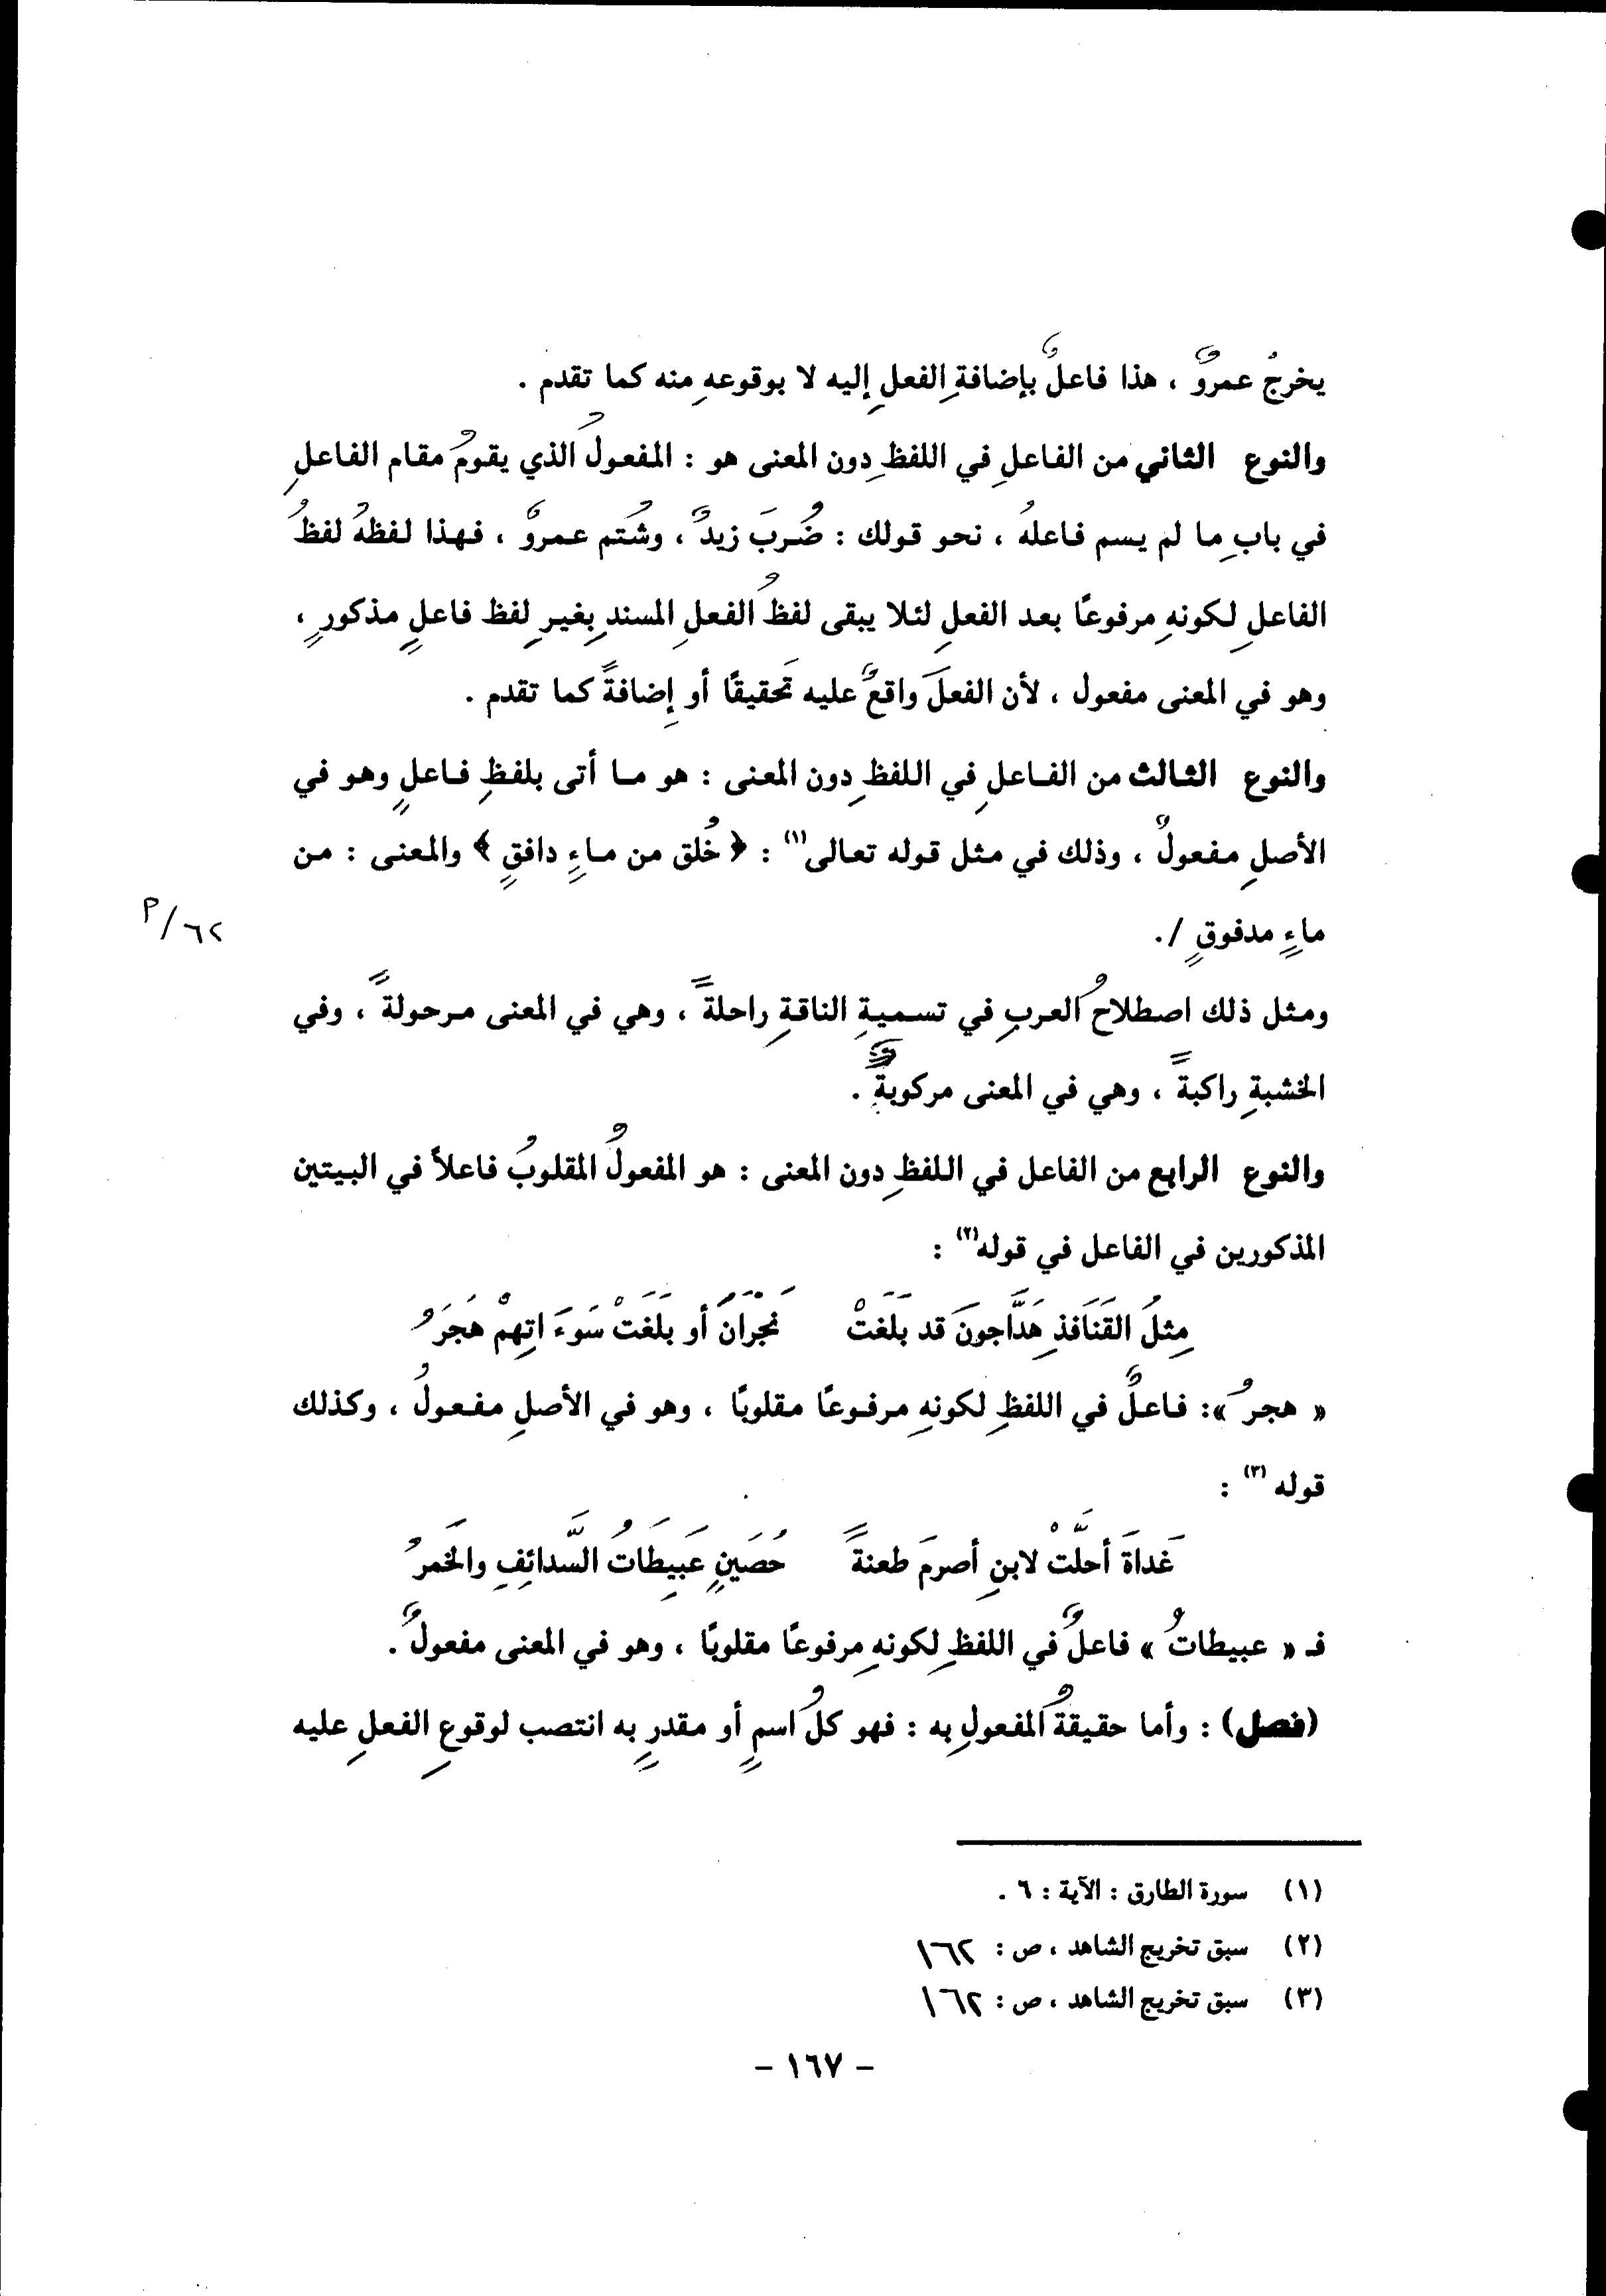 يخرجُ عمروٌ ، هذا فاعلٌ بإضافةِ الفعلِ إليه لا بوقوعهِ منه كما تقدم .
والنوع الثاني من الفاعلِ في اللفظِ دون المعنى هو : المفعولُ الذي يقومُ مقام الفاعلِ
في بابِ ما لم يسم فاعلهُ ، نحو قولك : ضُربَ زيدٌ ، وشُتم عمروٌ ، فهذا لفظهُ لفظُ
الفاعلِ لكونهِ مرفوعًا بعد الفعلِ لئلا يبقى لفظُ الفعلِ المسندِ بغيرِ لفظ فاعلٍ مذكورٍ ،
وهو في المعنى مفعول ، لأن الفعلَ واقعٌ عليه تَحقيقًا أو إضافةً كما تقدم .
والنوع الثالث من الفاعلِ في اللفظِ دون المعنى : هو ما أتى بلفظِ فاعلٍ وهو في
الأصلِ مفعولٌ ، وذلك في مثل قوله تعالى(١) : ﴿ خُلق من ماءٍ دافقٍ ﴾ والمعنى : من
ماءٍ مدفوقٍ /.
٦٢/م
ومثل ذلك اصطلاحُ العربِ في تسميةِ الناقةِ راحلةً ، وهي في المعنى مرحولةً ، وفي
الخشبةِ راكبةً ، وهي في المعنى مركوبة .
والنوع الرابع من الفاعل في اللفظِ دون المعنى : هو المفعولُ المقلوبُ فاعلاً في البيتين
المذكورين في الفاعل في قوله(٢) :
مِثلُ القَنَافذِ هَدَّاجونَ قد بَلَغَتْ نَجْرَانَُ أو بلَغَتْ سَوءَاتِهِمْ هَجَرُ
« هجرُ »: فاعلٌ في اللفظِ لكونهِ مرفوعًا مقلوبًا ، وهو في الأصلِ مفعولُ ، وكذلك
قوله (٣) :
غَداةَ أحلَّتْ لابنِ أصرمَ طعنةً حُصَينٍ عَبِيطَاتُ السَّدائِفِ والخَمرُ
فـ « عبيطاتُ » فاعلٌ في اللفظِ لكونهِ مرفوعًا مقلوبًا ، وهو في المعنى مفعولٌ .
(فصل) : وأما حقيقةُ المفعولِ به : فهو كلُ اسمٍ أو مقدرٍ به انتصب لوقوعِ الفعلِ عليه
(١) سورة الطارق : الآية : ٦ .
(٢) سبق تخريج الشاهد ، ص : ١٦٢
(٣) سبق تخريج الشاهد ، ص : ١٦٢
- ١٦٧ -